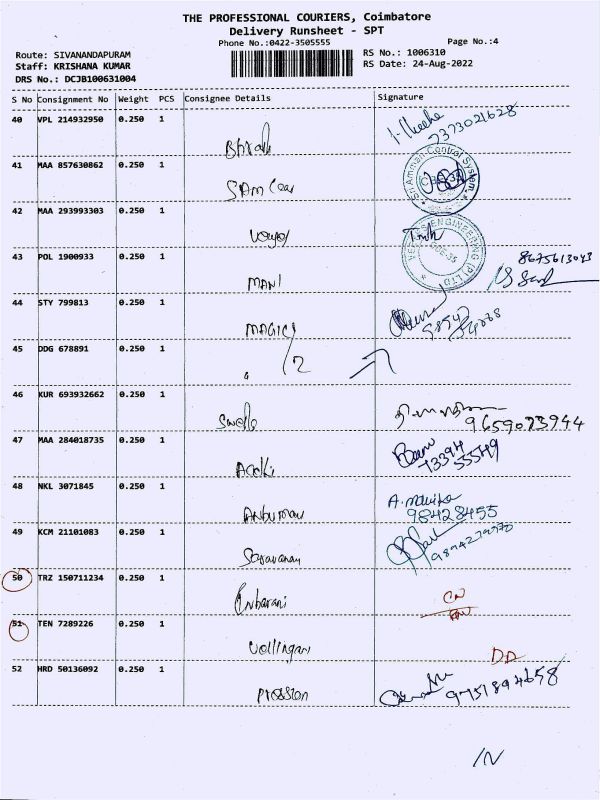 THE PROFESSIONAL COURIERS, Coimbatore
Delivery Runsheet - SPT
Phone No.:0422-3505555
Page No.:4
Route: SIVANANDAPURAM
RS No.: 1006310
Staff: KRISHANA KUMAR
RS Date: 24-Aug-2022
DRS No.: DCJB100631004
S No Consignment No Weight PCS Consignee Details Signature
40 VPL 214932950 0.250 1
7373021628
41 MAA 857630862 0.250 1
Sri Amman Central System
42 MAA 293993303 0.250 1
ENGINEERING (P) LTD
43 POL 1900933 0.250 1
MANI
8675613043
44 STY 799813 0.250 1
MAGIC
45 DDG 678891 0.250 1
/2
46 KUR 693932662 0.250 1
9659023944
47 MAA 284018735 0.250 1
73394
55549
48 NKL 3071845 0.250 1
A. Manika
98428455
49 KCM 21101083 0.250 1
Saravanan
50 TRZ 150711234 0.250 1
Inbarani
CN
51 TEN 7289226 0.250 1
Vellingiri
DD
52 HRD 50136092 0.250 1
9751894658